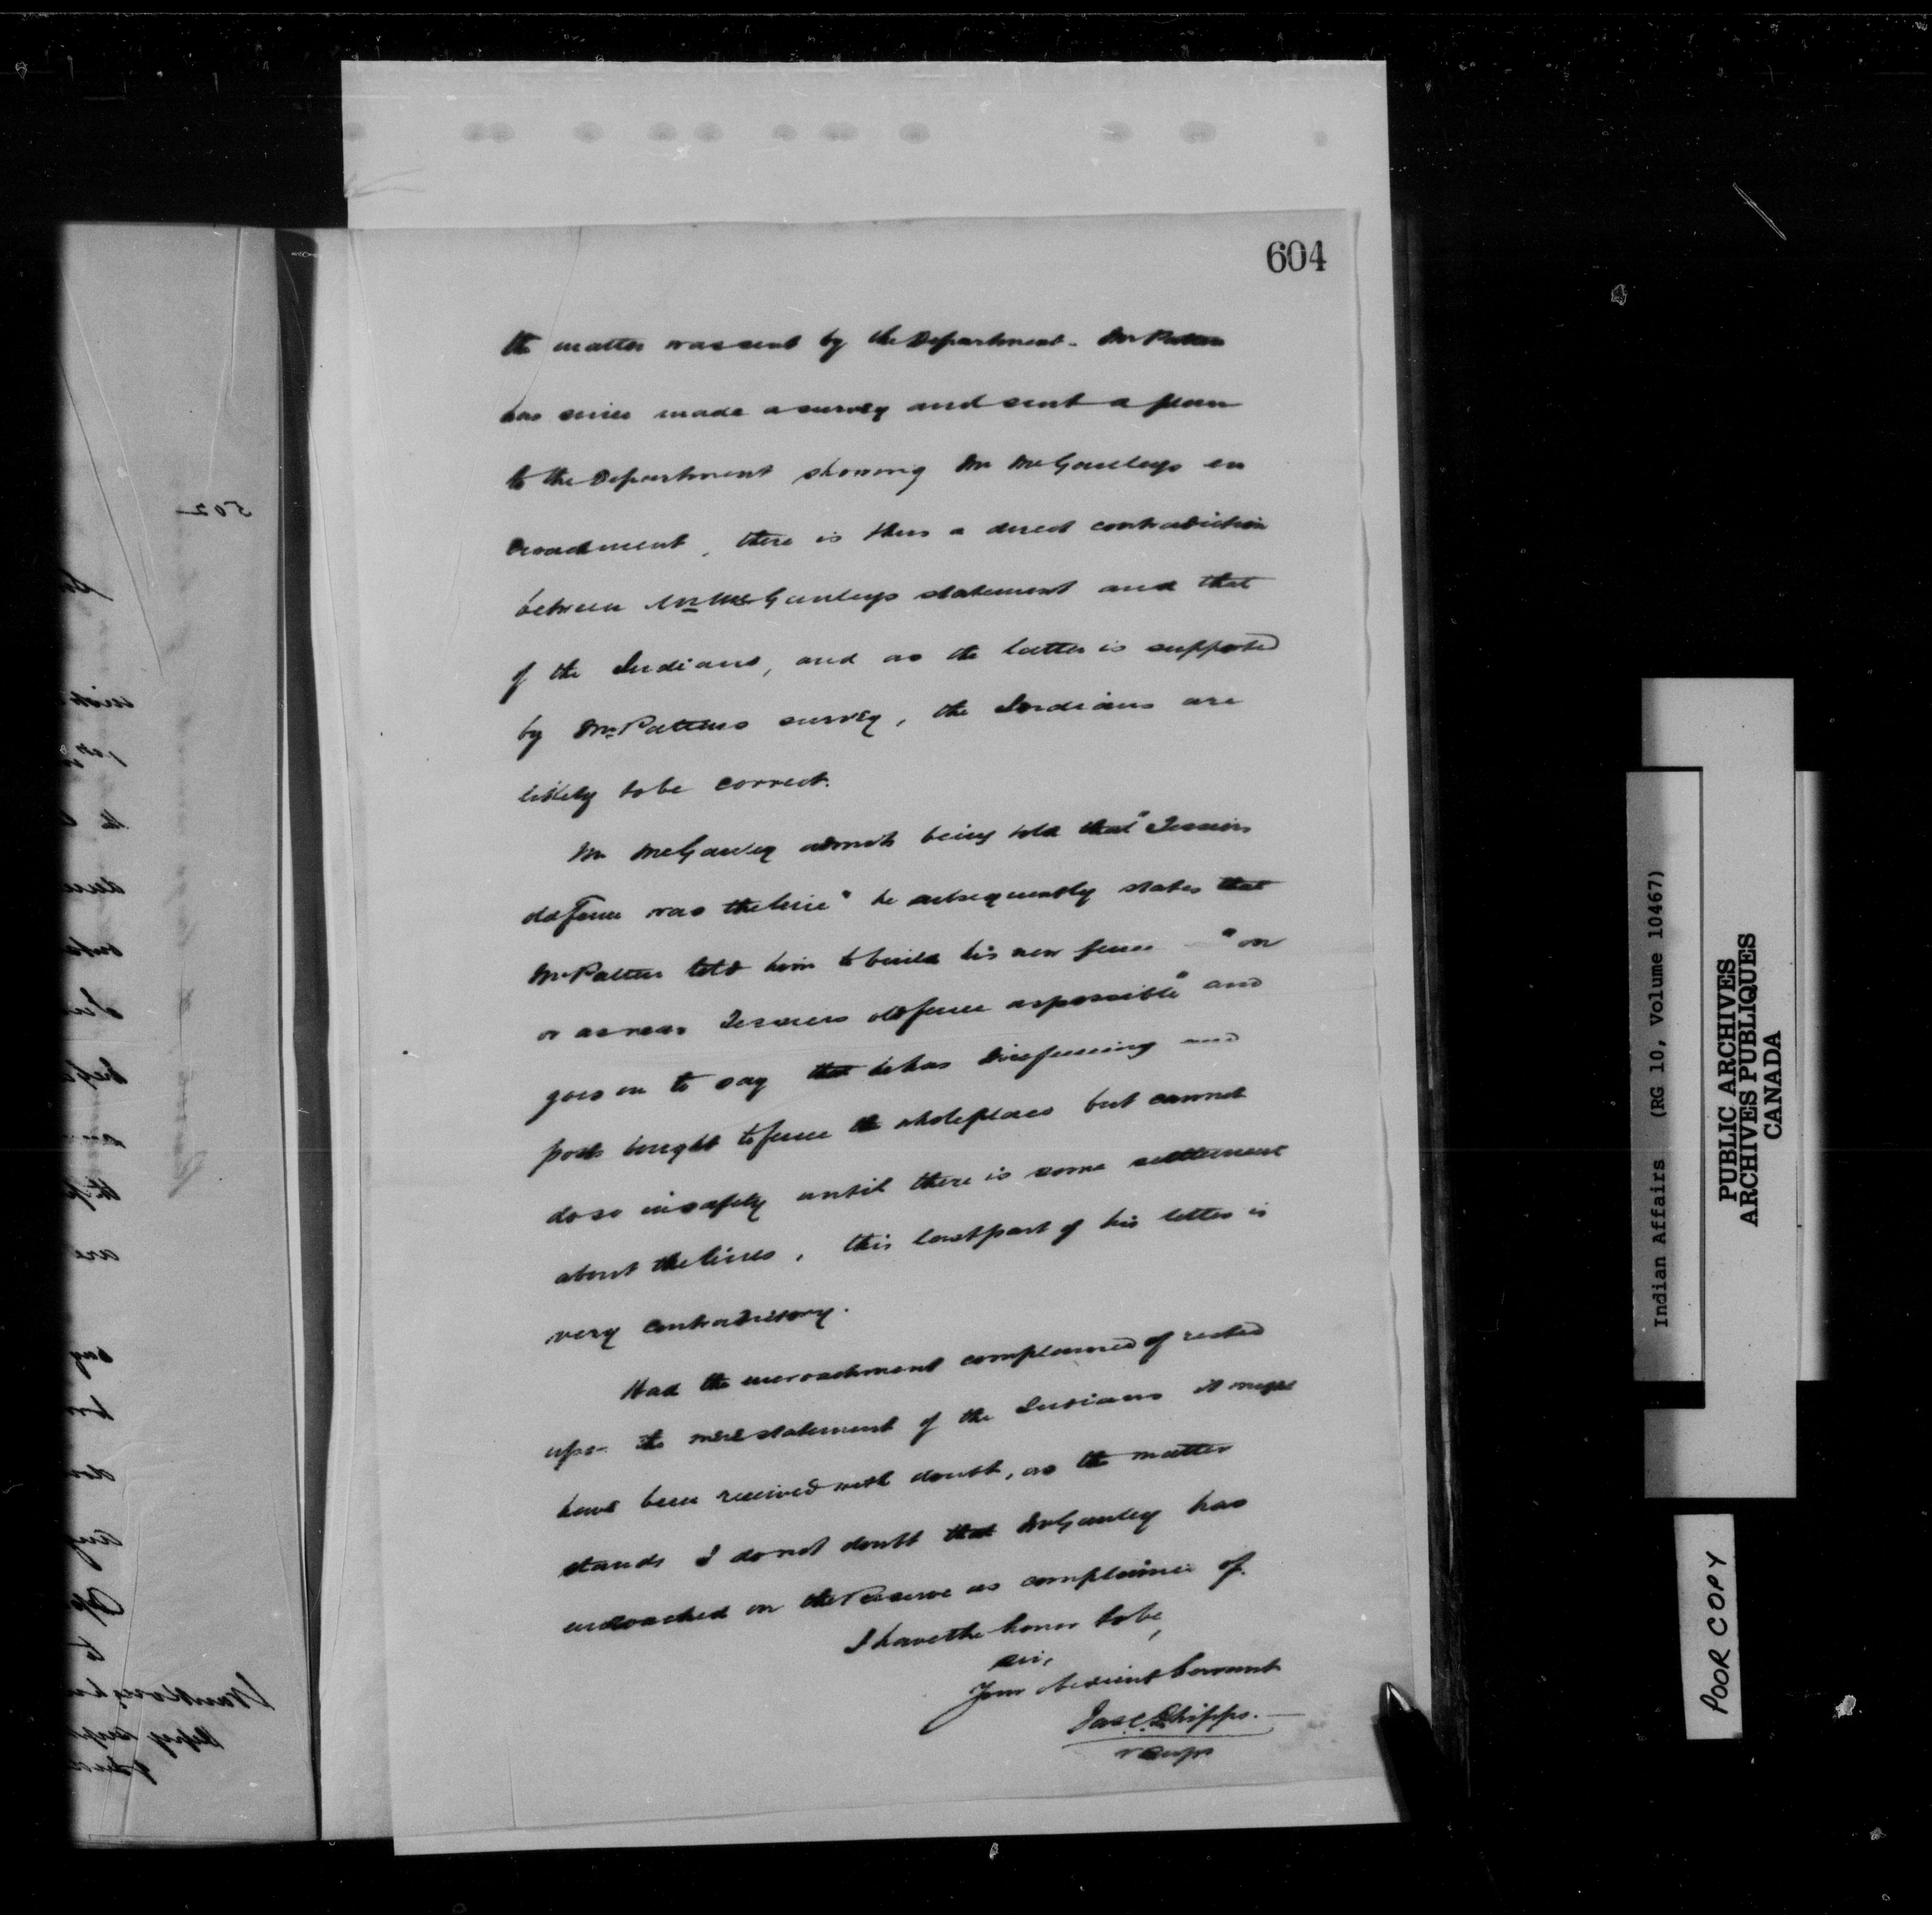 604
the matter was sent by the Department. Mr Patten
has since made a survey and sent a plan
to the Department showing Mr McGauleys en
croachment, there is thus a direct contradiction
between Mr McGauleys statement and that
of the Indians, and as the latter is supported
by Mr Pattens survey, the Indians are
likely to be correct.
Mr McGauley admits being told that "
old fence was the line" he subsequently states that
Mr Patten told him to build his new fence "on
or as near old fence as possible" and
goes on to say that he has wire fencing and
posts bought to fence the whole place but cannot
do so in safety until there is some settlement
about the lines, this last part of his letter is
very contradictory.
Had the encroachment complained of rested
upon the mere statement of the Indians it might
have been received with doubt, as the matter
stands I do not doubt that McGauley has
encroached on the Reserve as complained of.
I have the honor to be,
Sir,
Your obedient Servant
Jas. C. Phipps.
V Supt
502
Indian Affairs (RG 10, Volume 10467)
PUBLIC ARCHIVES
ARCHIVES PUBLIQUES
CANADA
POOR COPY